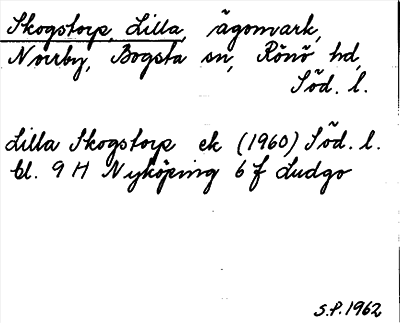 Skogstorp, Lilla, ägomark,
Norrby, Bogsta sn, Rönö hd,
Söd. l.
Lilla Skogstorp ek (1960) Söd. l.
bl. 9 H Nyköping 6 f Ludgo
S.P. 1962